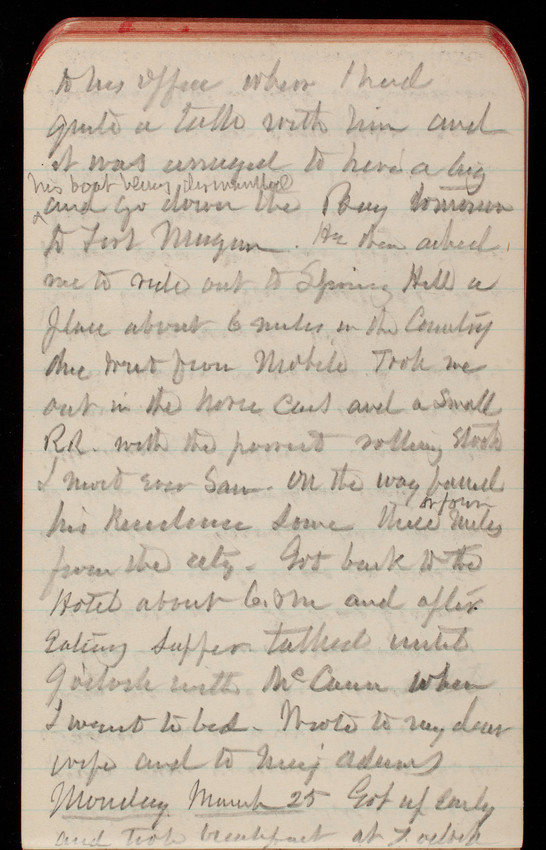 to his office where I had
quite a talk with him and
it was arranged to have a big
his boat being dismantled
and go down the Bay tomorrow
to Fort Morgan. He then asked
me to ride out to Spring Hill a
place about 6 miles in the Country
due West from Mobile Took me
out in the horse cars and a Small
R.R. with the poorest rolling Stock
I most ever Saw. On the way passed
his Residence Some three or four miles
from the city. Got back to the
Hotel about 6. P.M and after
Eating Supper talked until
9 oclock with McCann when
I went to bed. Wrote to my dear
wife and to Maj Adams
Monday March 25 Got up early
and took breakfast at 7 oclock